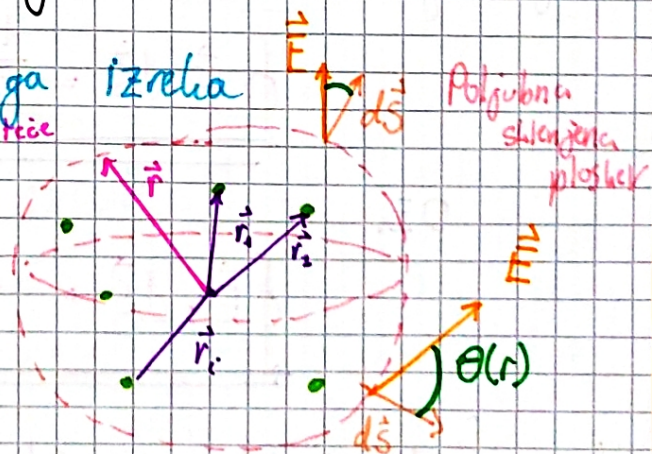 ga izreka
E⃗
dS⃗
Poljubna
sklenjena
ploskev
r⃗
r⃗₁
r⃗₂
r⃗ᵢ
E⃗
θ(r)
dS⃗